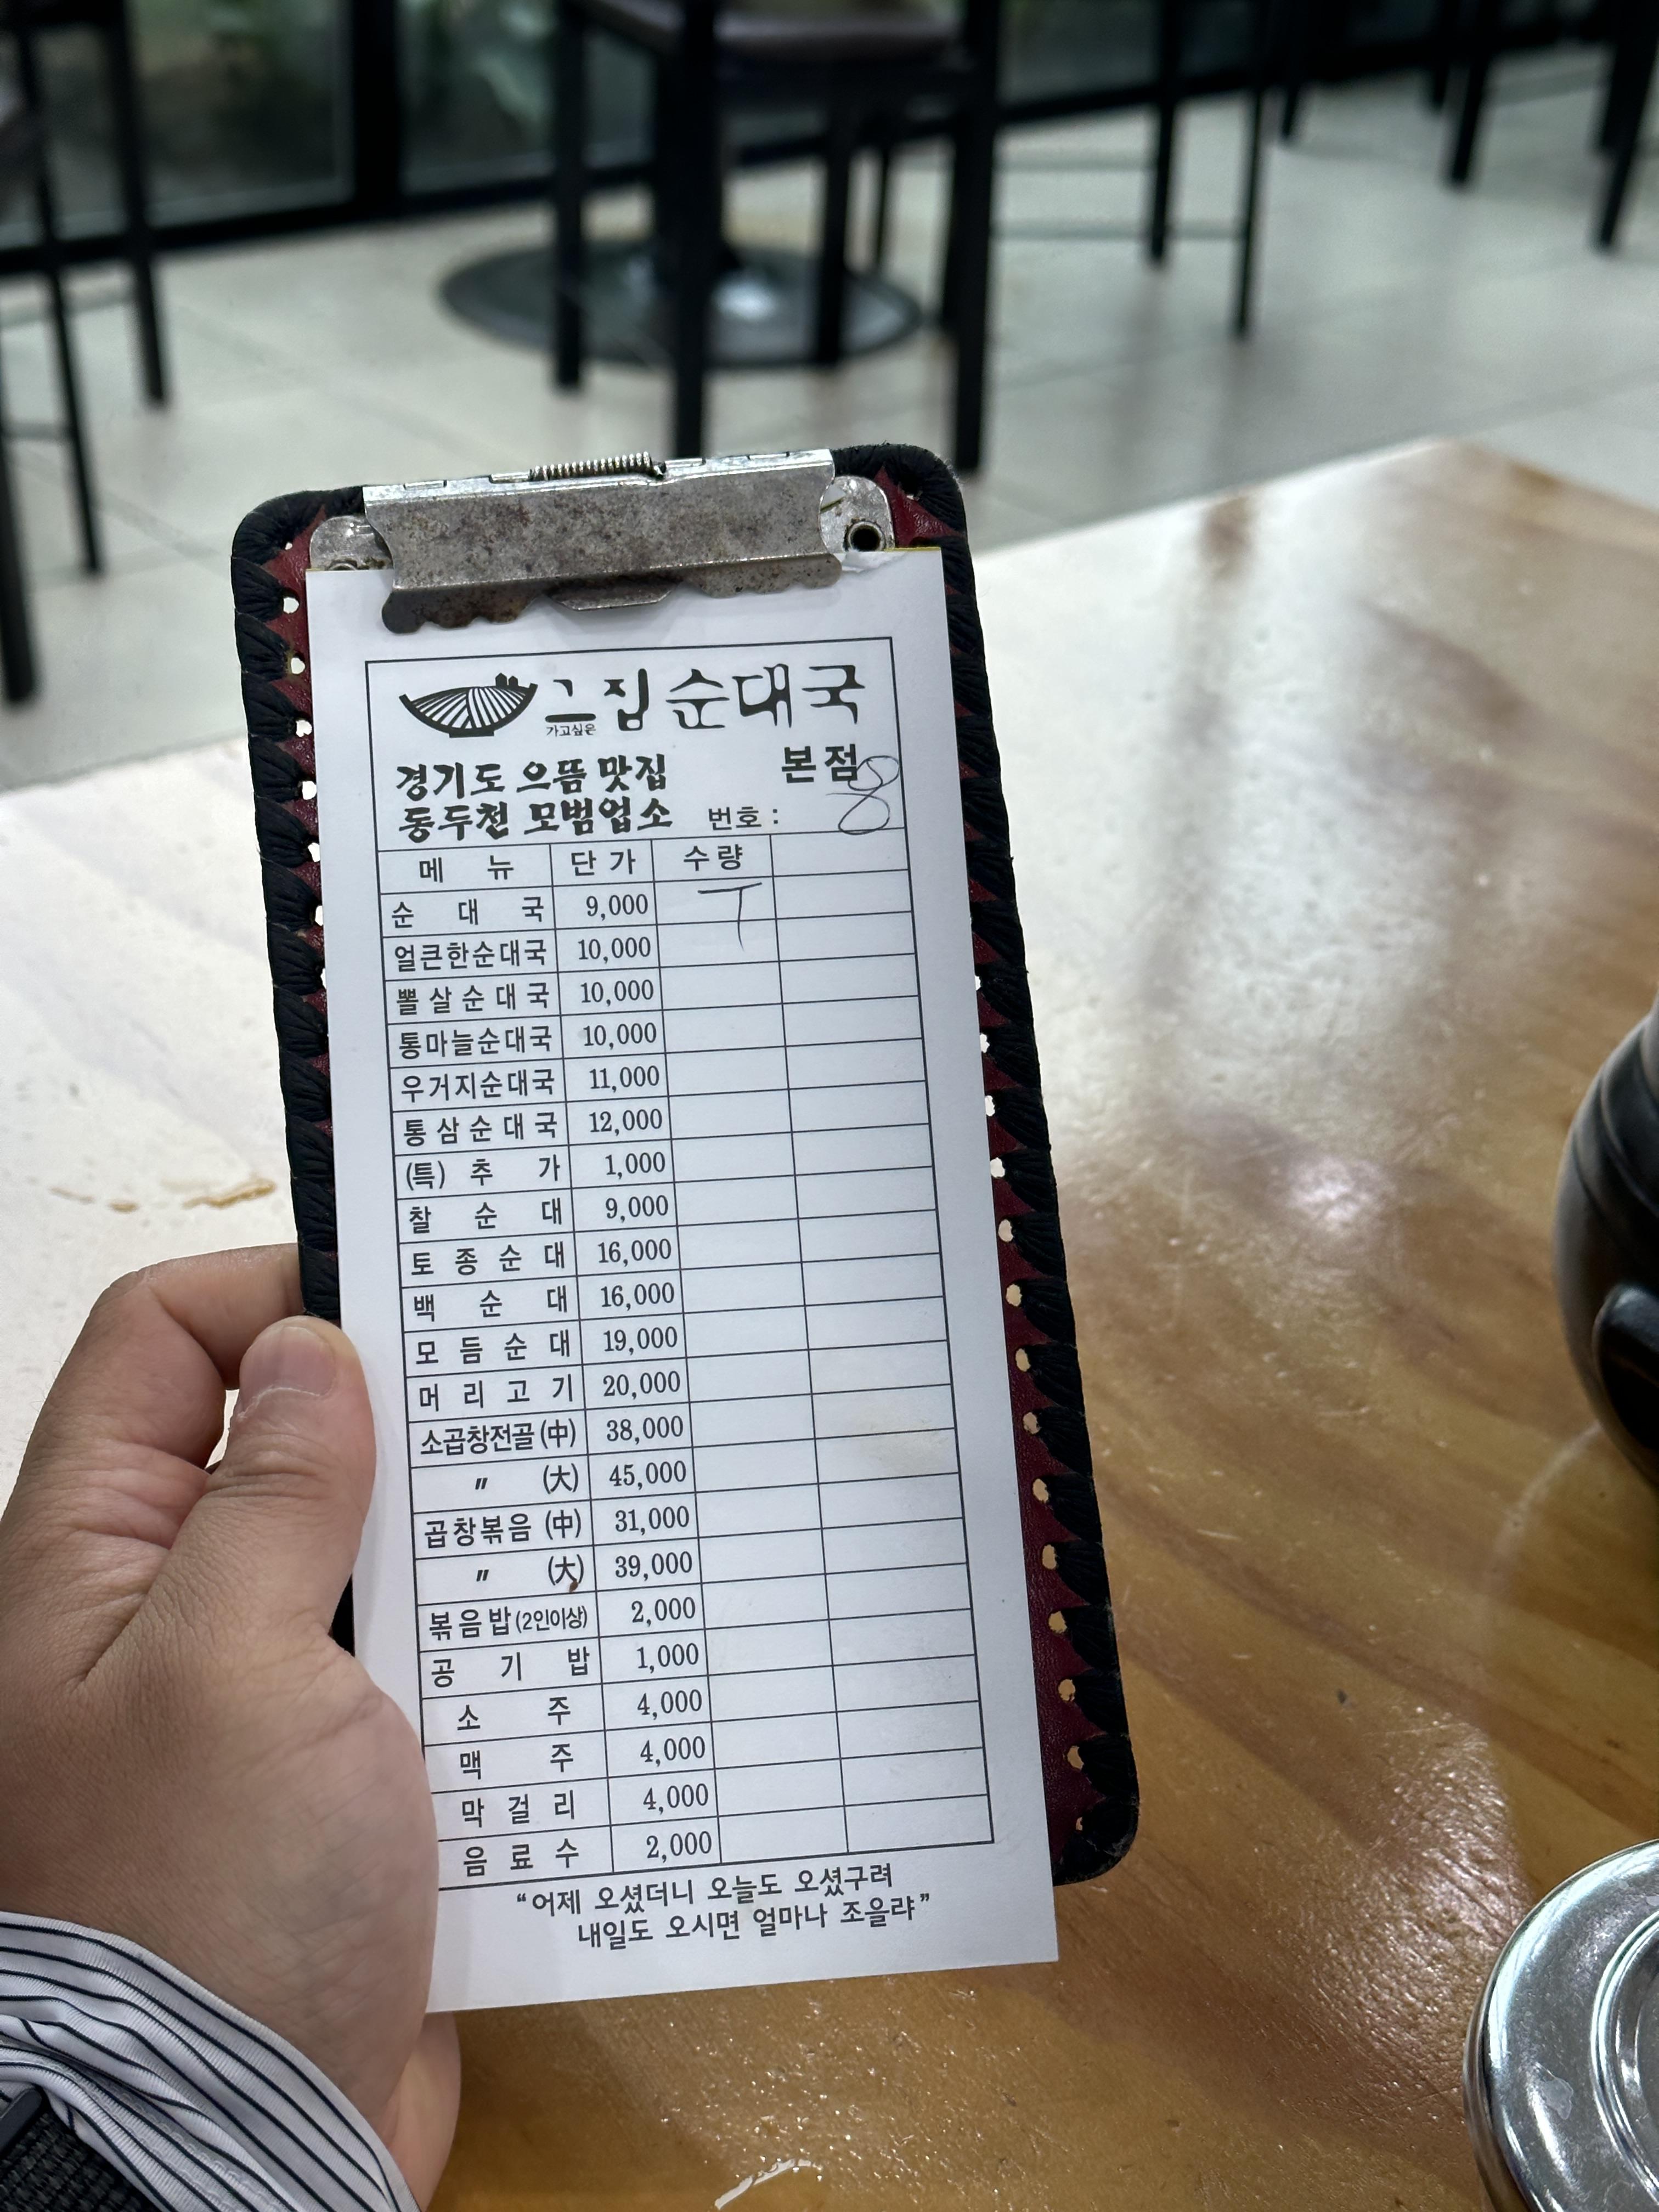 그집 순대국
가고싶은
본점
경기도 으뜸 맛집
동두천 모범업소 번호 : 8
메뉴 단가 수량
순대국 9,000 ㅜ
얼큰한순대국 10,000
뽈살순대국 10,000
통마늘순대국 10,000
우거지순대국 11,000
통삼순대국 12,000
(특) 추가 1,000
찰순대 9,000
토종순대 16,000
백순대 16,000
모듬순대 19,000
머리고기 20,000
소곱창전골 (中) 38,000
〃 (大) 45,000
곱창볶음 (中) 31,000
〃 (大) 39,000
볶음밥 (2인이상) 2,000
공기밥 1,000
소주 4,000
맥주 4,000
막걸리 4,000
음료수 2,000
“어제 오셨더니 오늘도 오셨구려
내일도 오시면 얼마나 조을랴”